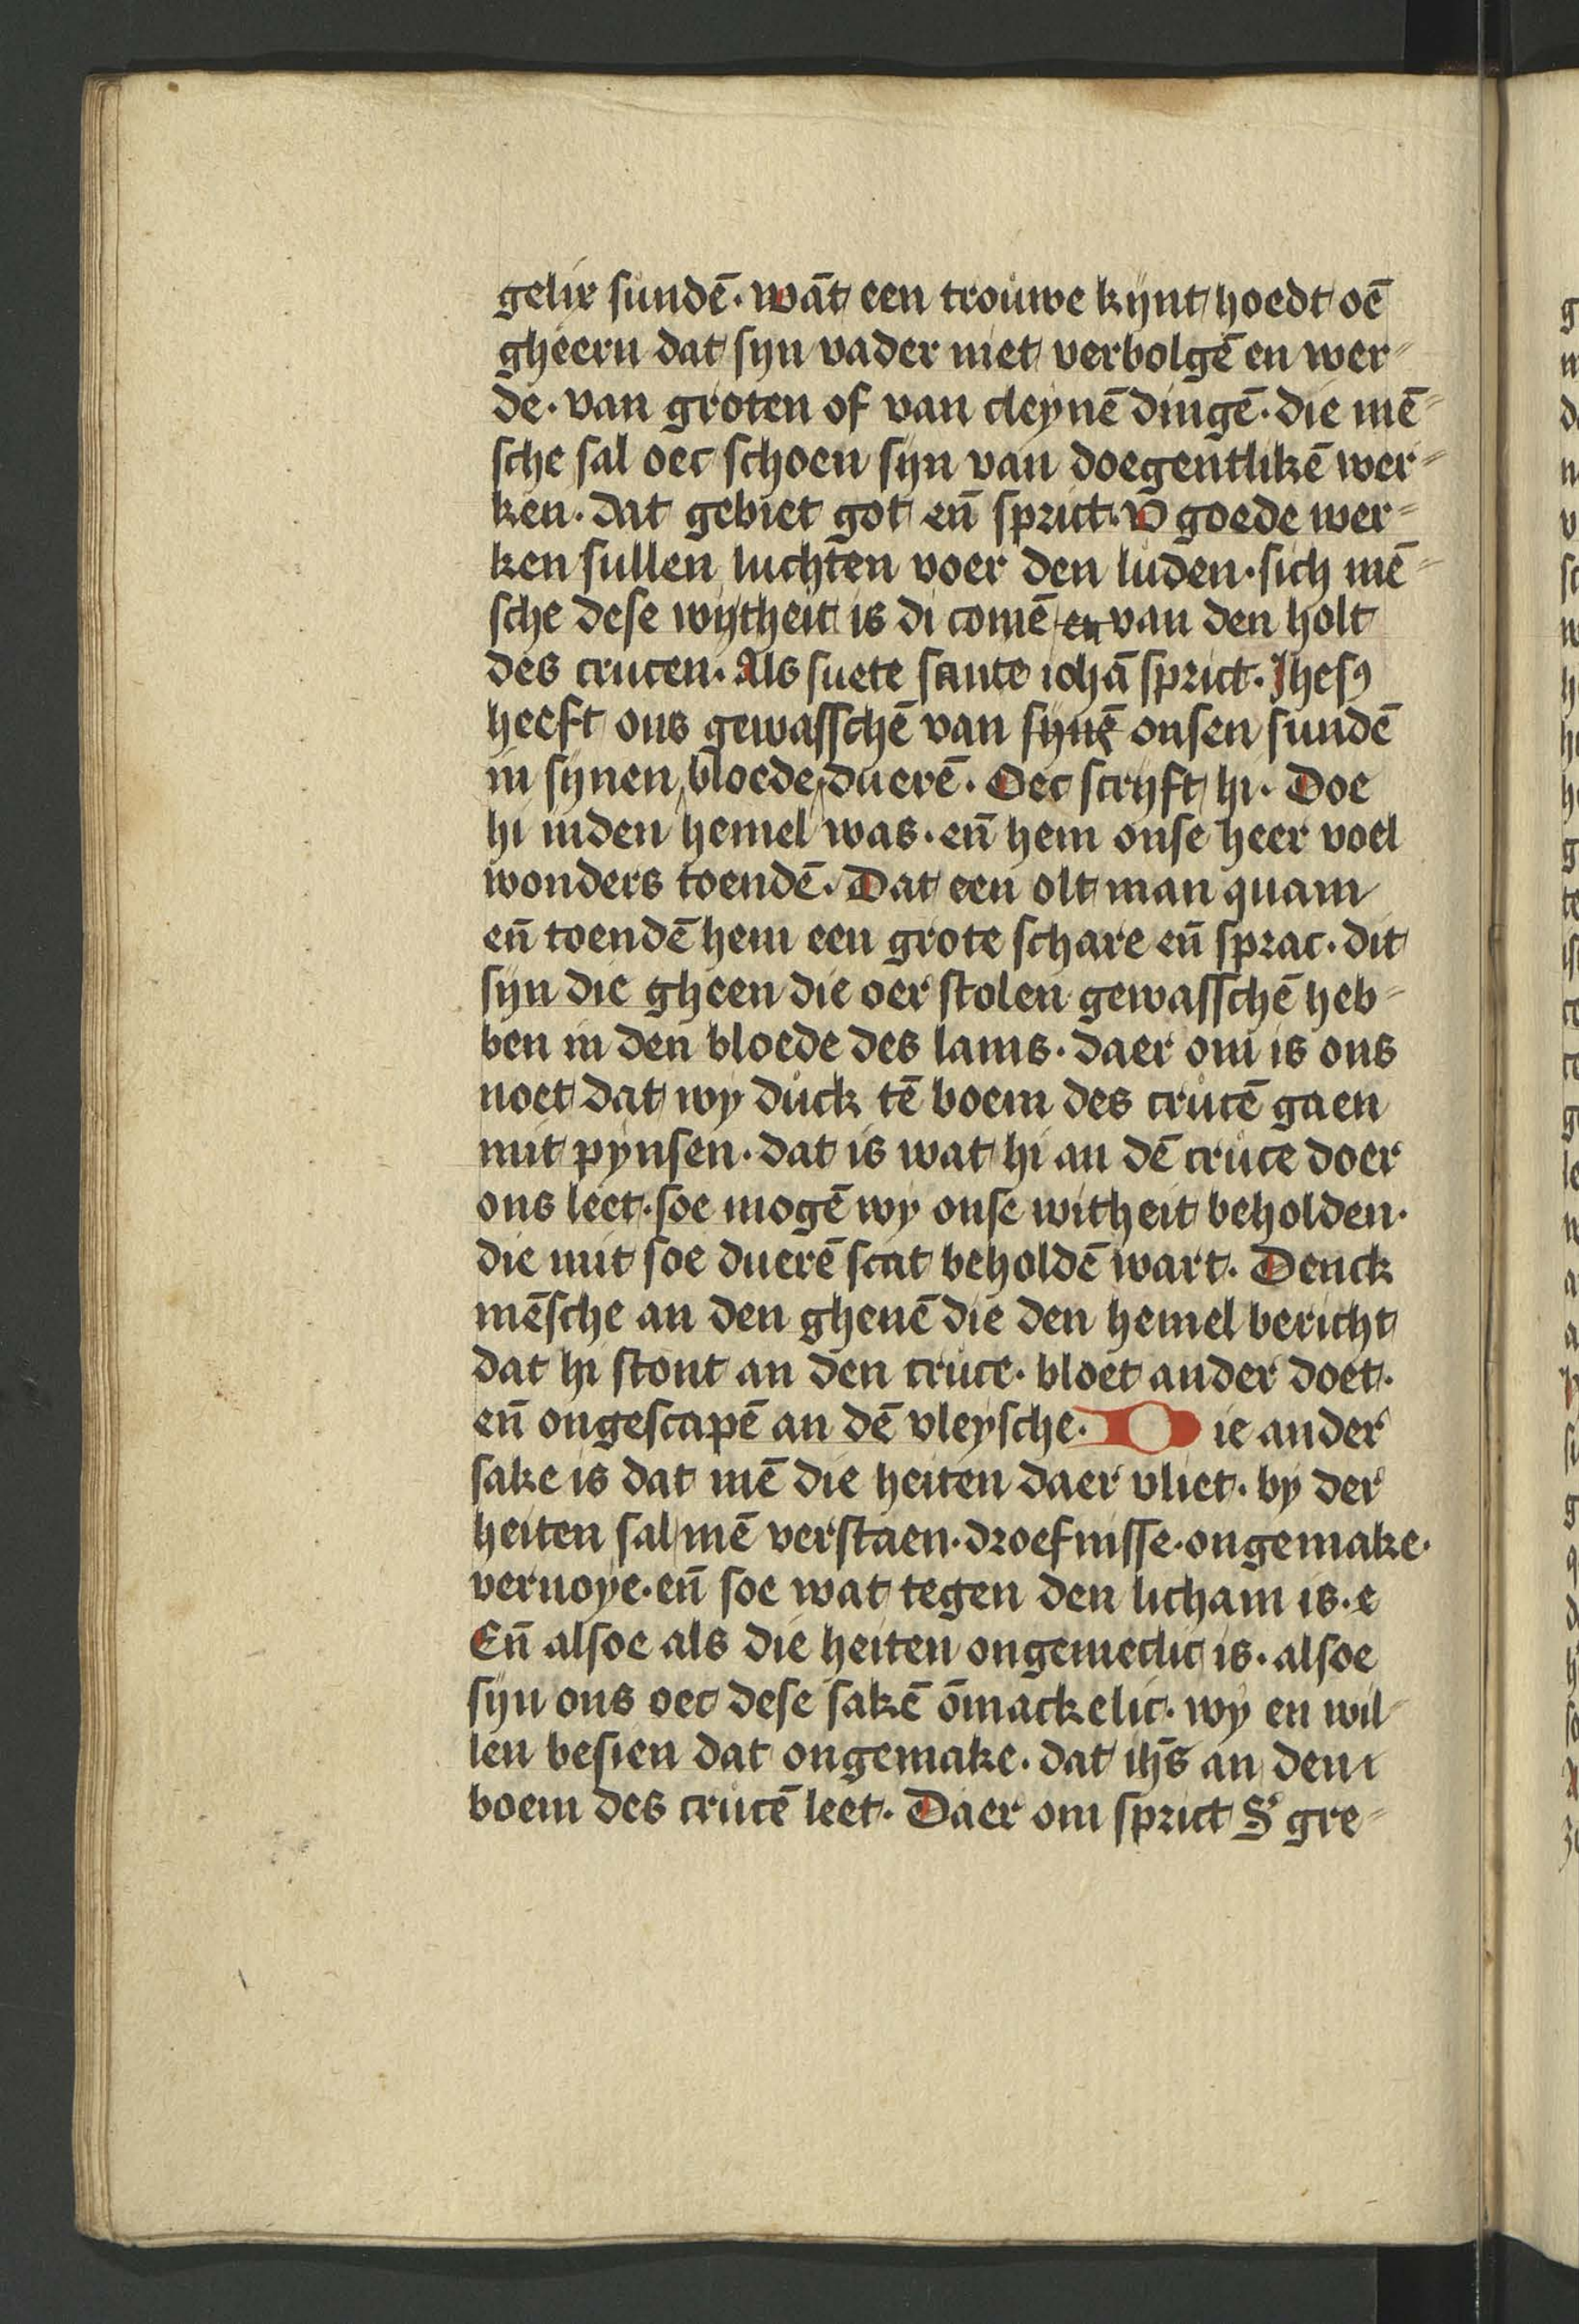 gelix sundē. wāt een trouwe kynt hoedt oē
gheern dat syn vader niet verbolgē en wer⸗
de. van groten of van cleynē dingē. die mē⸗
sche sal oec schoen syn van doegentlikē wer⸗
ken. dat gebiet got en̄ sprict. v̄ goede wer⸗
ken sullen luchten voer den luden. sich mē⸗
sche dese wytheit is di comē en van den holt
des crucen. Als suete sante iohā sprict. Jhesꝯ
heeft ons gewasschē van synē onsen sundē
in synen bloede duerē. Oec scryft hi. Doe
hi inden hemel was. en̄ hem onse heer voel
wonders toendē. Dat een olt man quam
en̄ toendē hem een grote schare en̄ sprac. dit
syn die gheen die oer stolen gewasschē heb⸗
ben in den bloede des lams. daer om is ons
noet dat wy duck tē boem des crucē gaen
mit pynsen. dat is wat hi an dē cruce doer
ons leet. soe mogē wy onse witheit beholden.
die mit soe duerē scat beholdē wart. Denck
mēsche an den ghenē die den hemel bericht
dat hi stont an den cruce. bloet ander doet.
en̄ ongescapē an dē vleysche. Die ander
sake is dat mē die heiten daer vliet. by der
heiten sal mē verstaen. droefnisse. ongemake.
vernoye. en̄ soe wat tegen den licham is. e
En̄ alsoe als die heiten ongemeclic is. alsoe
syn ons oec dese sakē ōmackelic. wy en wil⸗
len besien dat ongemake. dat ih̄s an dem
boem des crucē leet. Daer om sprict S' gre⸗